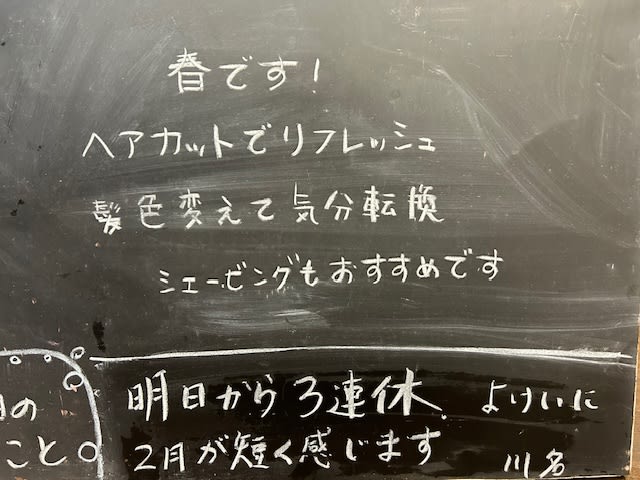 春です!
ヘアカットでリフレッシュ
髪色変えて気分転換
シェービングもおすすめです
明日から3連休、よけいに
2月が短く感じます
川名
の
こと